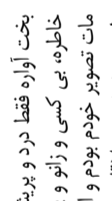 بخت آواره فقط درد و
خاطره، بی کسی و زانو و
مات تصویر خودم بودم و